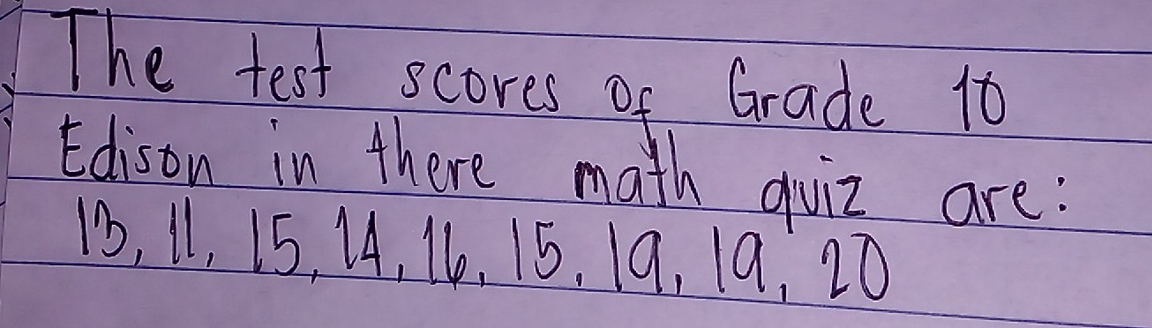 The test scores of Grade 10
Edison in there math quiz are:
13, 11, 15, 14, 16, 15, 19, 19, 20